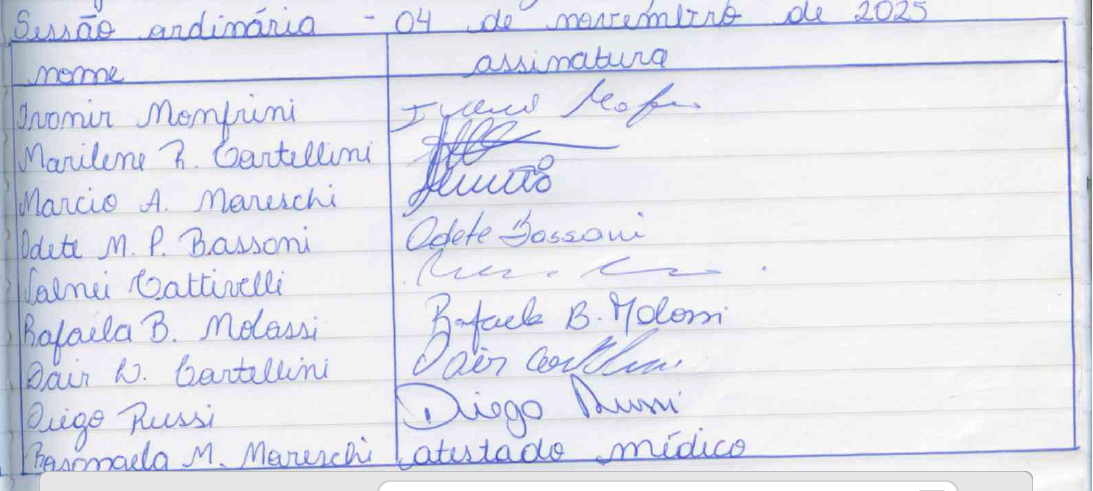 Sessão ordinária - 04 de novembro de 2025
nome assinatura
Ivomir Monfrini
Marilene R. Cartellini
Marcio A. Mareschi
Odete M. P. Bassoni Odete Bassoni
Valnei Cattivelli
Rafaela B. Molossi Rafaela B. Molossi
Odair W. Cartellini Odair
Diego Russi Diego Russi
M. Mareschi atestado médico